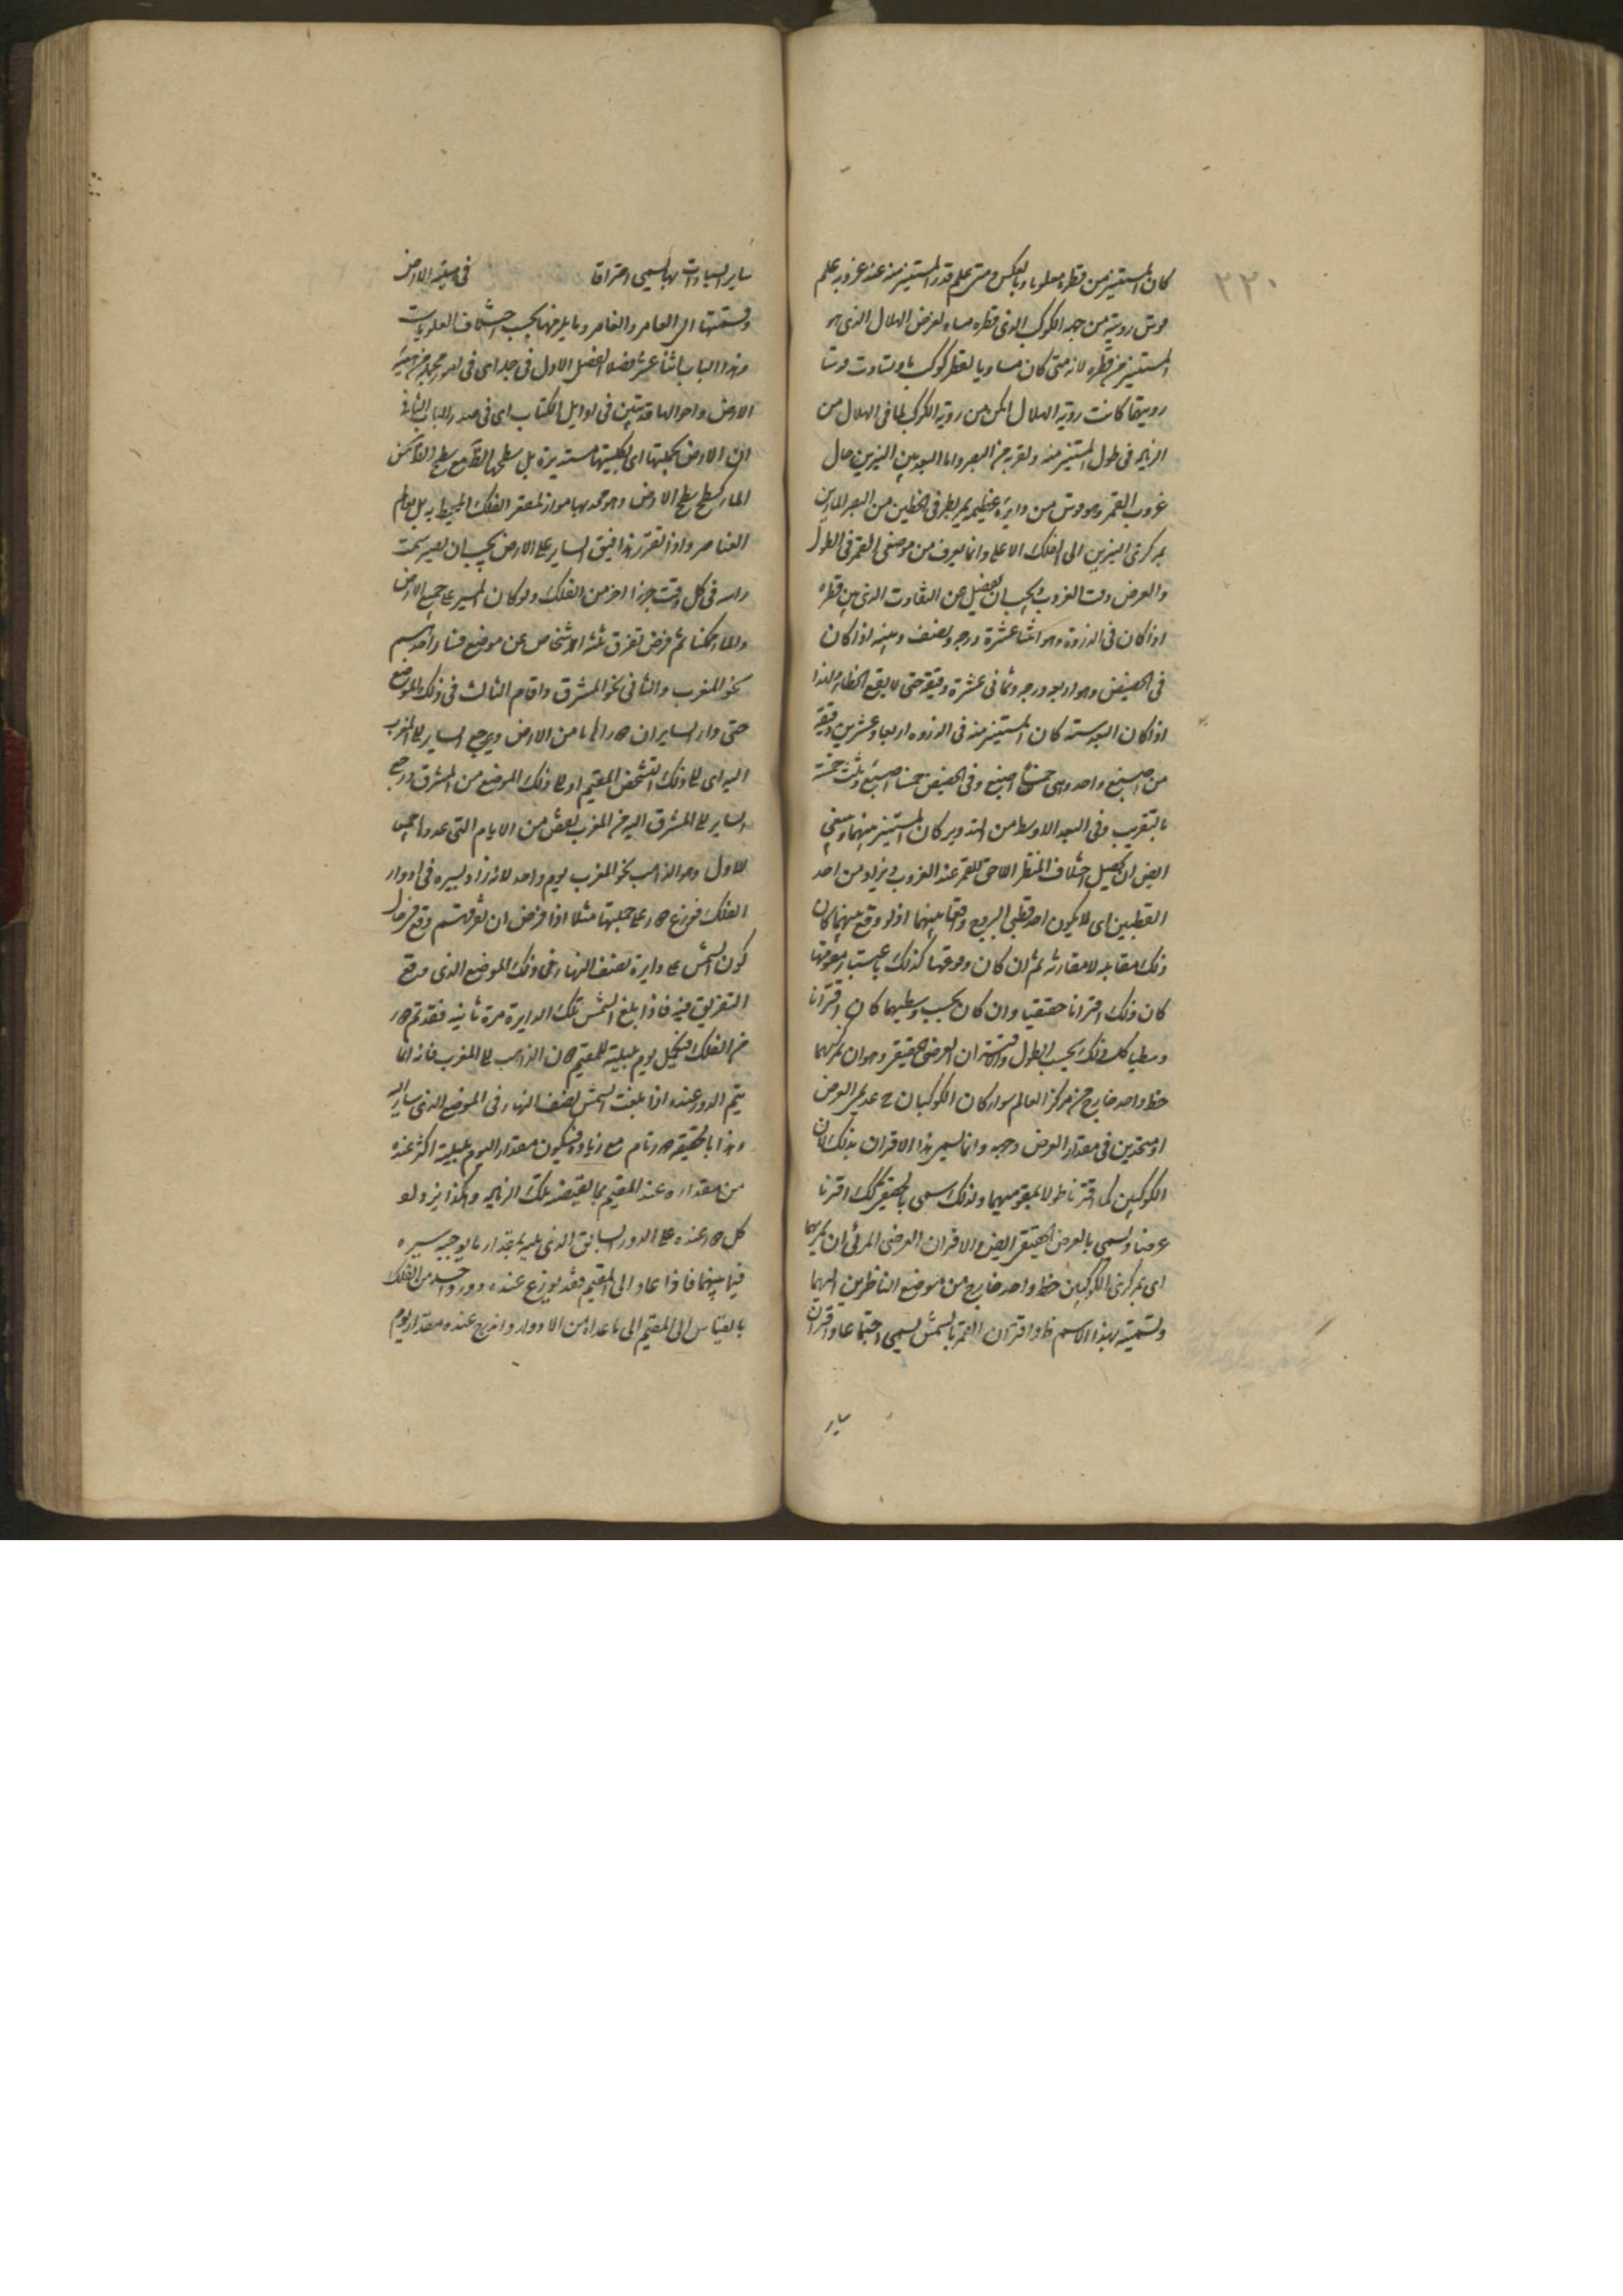 ٢٢٠
كان المستنير من قطره معلوما وبالعكس ومتى علم قدر المستنير منه عند غروبه علم
قوس رؤيته من جهة الكوكب الذى قطره مساو لعرض الهلال الذى هو
المستنير من قطره لانه متى كان مساويا لقطر كوكب وتساوت قوسا
رويتهما كانت روية الهلال امكن من روية الكوكب لما فى الهلال من
الزيادة فى طول المستنير منه ولقربه من البصر واما البعد بين النيرين حال
غروب القمر وهو قوس من دايرة عظيمة يمر بطرفى الخطين من البصر المارين
بمركزى النيرين الى الفلك الاعلى وانما يعرف من موضعى القمر فى الطول
والعرض وقت الغروب يجب ان يفصل عن التفاوت الذى بين قطره
اذا كان فى الذروة وهو اثنا عشرة درجة ونصف وبينه اذا كان
فى الحضيض وهو اربع درجة وثمانى عشرة دقيقة حتى لا يقع الخطا ولهذا
اذا كان البعد ستة كان المستنير منه فى الذروة اربعا وعشرين دقيقة
من اصبع واحد وهى خمسا اصبع وفى الحضيض خمسا اصبع وثلث خمسه
بالتقريب وفى البعد الاوسط من التدوير كان المستنير بينهما وينبغى
ايضا ان يحصل اختلاف المنظر اللاحق للقمر عند الغروب من احد
القطبين اى لا يكون احد قطبى البروج واقعا بينهما اذ لو وقع بينهما كان
ذلك مقابلة لا مقارنة ثم ان كان وقوعهما كذلك باعتبار تقويمهما
كان ذلك اقترانا حقيقيا وان كان بحسب وسطيهما كان اقترانا
وسطيا كل ذلك بحسب الطول والاقتران العرضى الحقيقى وهو ان يمر بمركزيهما
خط واحد خارج من مركز العالم سواء كان الكوكبان عديمى العرض
او متحدين فى مقدار العرض وجهته وانما سمى هذا الاقتران بذلك لان
الكوكبين كما اقترنا طولا بتقويميهما ولذلك سمى بالحقيقى كذلك اقترنا
عرضا ويسمى بالعرض الحقيقى ايضا والاقتران العرضى المرئى ان يمر بهما
اى بمركزى الكوكبين خط واحد خارج من موضع الناظرين اليهما
وتسميته بهذا الاسم ظ واقتران القمر بالشمس يسمى اجتماعا واقتران
ساير
ساير السيارات بها يسمى احتراقا فى هيئة الارض
وقسمتها الى العامر والغامر وما يلزمها بحسب اختلاف العلويات
وهذا الباب اثنا عشر فصلا الفصل الاول فى جمل اى فى امور مجملة من هيئة
الارض واحوالها قد تبين فى اوايل الكتاب اى فى صدر الباب الثانى
ان الارض بجملتها اى بكليتها مستديرة بل سطحها الظ مع سطح
الماء كسطح الارض وهو محدبها مواز لمقعر الفلك المحيط به بل بعالم
العناصر واذا تقرر هذا فنقول الساير على الارض يجب ان يصير سمت
راسه فى كل وقت جزءا اخر من الفلك ولو كان المسير على جميع الارض
والماء ممكنا ثم فرض تفرق ثلثة اشخاص عن موضع فسار احدهم
نحو المغرب والثانى نحو المشرق واقام الثالث فى ذلك الموضع
حتى دار السايران دورا تاما من الارض ورجع الساير الى المغرب
اليه اى الى ذلك الشخص المقيم او الى ذلك الموضع من المشرق ورجع
الساير الى المشرق اليه من المغرب نقص من الايام التى عدوها جميعا
للاول وهو الذاهب نحو المغرب يوم واحد لانه زاد بسيره فى ادوار
الفلك فوزع دور على جملتها مثلا اذا فرض ان تفرقهم وقع فى حال
كون الشمس على دايرة نصف النهار فى ذلك الموضع الذى وقع
التفريق فيه فاذا بلغ الشمس تلك الدايرة مرة ثانية فقد تم دور
من الفلك فيحصل يوم بليلته للمقيم دون الذاهب الى المغرب فانه انما
يتم الدور عنده اذا بلغت الشمس نصف النهار فى الموضع الذى سار اليه
وهذا بالحقيقة دور تام مع زيادة فيكون مقدار اليوم بليلته اكثر عنده
من مقداره عند المقيم بما يقتضيه تلك الزيادة وهكذا يزداد
كل دور عنده على الدور السابق الذى يليه بمقدار ما يوجبه مسيره
فيما بينهما فاذا عاد الى المقيم فقد توزع عنده دور واحد من الفلك
بالقياس الى المقيم الى ما عداه من الادوار واندرج عنده مقدار يوم